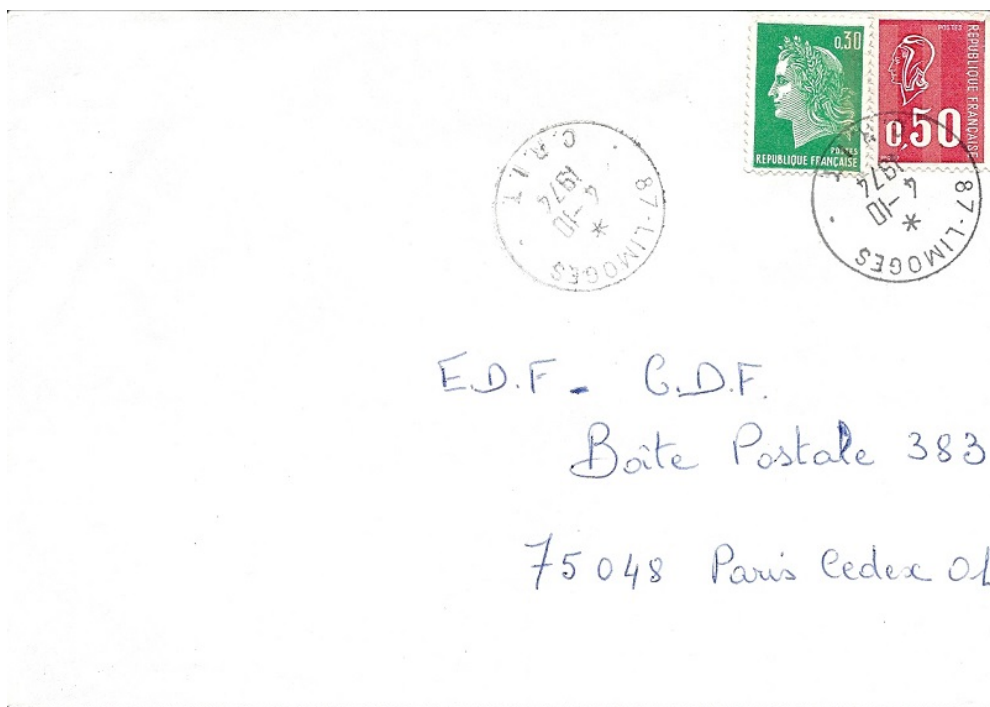 0,30
POSTES
REPUBLIQUE FRANÇAISE
POSTES
REPUBLIQUE FRANÇAISE
0,50
87-LIMOGES
C.R.I.T.
* 4-10
1974
87-LIMOGES
* 4-10
1974
E.D.F - G.D.F.
Boîte Postale 383
75048 Paris Cedex 01